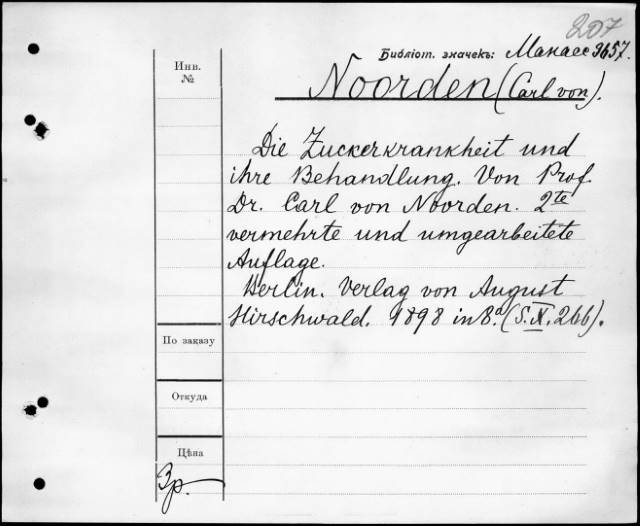 207
Библіот. значекъ: Манасс 3657.
Инв.
№
Noorden (Carl von).
Die Zuckerkrankheit und
ihre Behandlung. Von Prof.
Dr. Carl von Noorden. 2te
vermehrte und umgearbeitete
Auflage.
Berlin. Verlag von August
Hirschwald. 1898 in 8.º (S. X. 266).
По заказу
Откуда
Цѣна
3р.